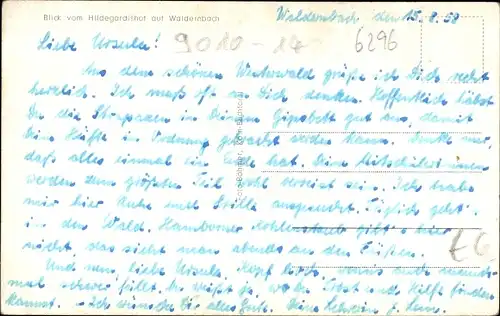 Blick vom Hildegardishof auf Waldernbach
Waldernbach den 15.8.58
9010-17
6296
Liebe Ursula!
Aus dem schönen Westerwald grüße ich Dich recht
herzlich. Ich muß oft an Dich denken. Hoffentlich hälst
Du die Strapazen in Deinem Gipsbett gut aus, damit
Deine Hüfte in Ordnung gebracht werden kann. Denke nur,
daß alles einmal ein Ende hat. Deine Mitschülerinnen
werden zum größten Teil wohl verreist sein. Ich habe
mir hier Ruhe und Stille ausgesucht. Täglich geht's
in den Wald. Hamborner Kohlenstaub gibt's hier
nicht, das sieht man abends an den Füßen.
Und nun, liebe Ursula, Kopf hoch, wenn's auch manch-
mal schwer fällt. Du weißt ja, wo Du Trost und Hilfe finden
kannst. - Ich wünsche Dir alles Gute. Deine Schwester J.